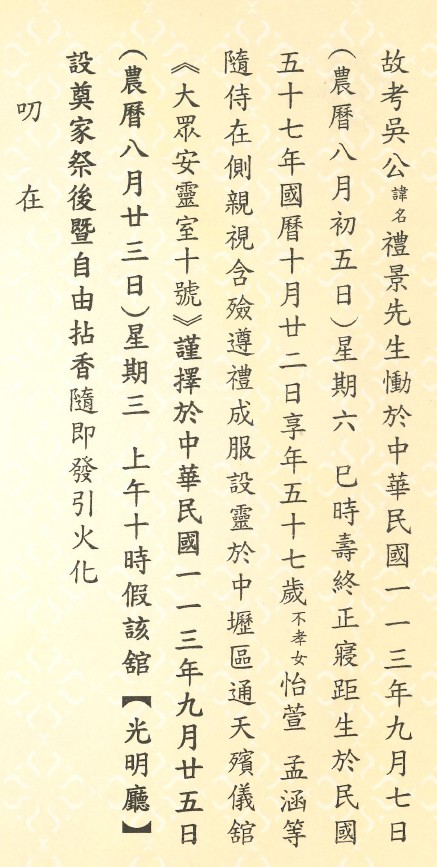 故考吳公諱名禮景先生慟於中華民國一一三年九月七日
(農曆八月初五日)星期六　巳時壽終正寢距生於民國
五十七年國曆十月廿二日享年五十七歲不孝女怡萱　孟涵等
隨侍在側親視含殮遵禮成服設靈於中壢區通天殯儀舘
《大眾安靈室十號》謹擇於中華民國一一三年九月廿五日
(農曆八月廿三日)星期三　上午十時假該舘【光明廳】
設奠家祭後暨自由拈香隨即發引火化
叨　在